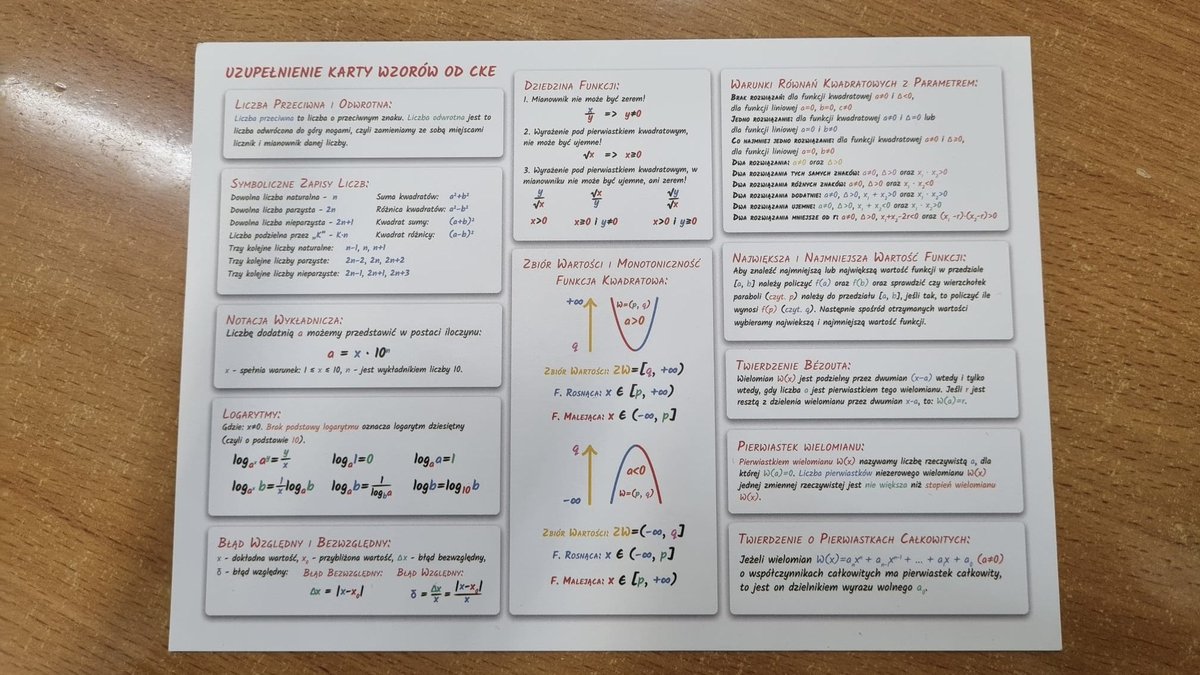 UZUPEŁNIENIE KARTY WZORÓW OD CKE
LICZBA PRZECIWNA I ODWROTNA:
Liczba przeciwna to liczba o przeciwnym znaku. Liczba odwrotna jest to
liczba odwrócona do góry nogami, czyli zamieniamy ze sobą miejscami
licznik i mianownik danej liczby.
SYMBOLICZNE ZAPISY LICZB:
Dowolna liczba naturalna - n
Dowolna liczba parzysta - 2n
Dowolna liczba nieparzysta - 2n+1
Liczba podzielna przez „K” - K·n
Suma kwadratów: a²+b²
Różnica kwadratów: a²-b²
Kwadrat sumy: (a+b)²
Kwadrat różnicy: (a-b)²
Trzy kolejne liczby naturalne: n-1, n, n+1
Trzy kolejne liczby parzyste: 2n-2, 2n, 2n+2
Trzy kolejne liczby nieparzyste: 2n-1, 2n+1, 2n+3
NOTACJA WYKŁADNICZA:
Liczbę dodatnią a możemy przedstawić w postaci iloczynu:
a = x · 10ⁿ
x - spełnia warunek: 1 ≤ x ≤ 10, n - jest wykładnikiem liczby 10.
LOGARYTMY:
Gdzie: x≠0. Brak podstawy logarytmu oznacza logarytm dziesiętny
(czyli o podstawie 10).
log_aˣ aʸ = y/x log_a 1=0 log_a a=1
log_aˣ b = 1/x log_a b log_a b = 1/log_b a logb=log₁₀b
BŁĄD WZGLĘDNY I BEZWZGLĘDNY:
x - dokładna wartość, x₀ - przybliżona wartość, Δx - błąd bezwzględny,
δ - błąd względny: BŁĄD BEZWZGLĘDNY: BŁĄD WZGLĘDNY:
Δx = |x-x₀| δ = Δx/x = |x-x₀|/x
DZIEDZINA FUNKCJI:
1. Mianownik nie może być zerem!
x/y => y≠0
2. Wyrażenie pod pierwiastkiem kwadratowym,
nie może być ujemne!
√x => x≥0
3. Wyrażenie pod pierwiastkiem kwadratowym, w
mianowniku nie może być ujemne, ani zerem!
y/√x √x/y √y/√x
x>0 x≥0 i y≠0 x>0 i y≥0
ZBIÓR WARTOŚCI I MONOTONICZNOŚĆ
FUNKCJA KWADRATOWA:
+∞
q
W=(p, q)
a>0
ZBIÓR WARTOŚCI: ZW=[q, +∞)
F. ROSNĄCA: x ∈ [p, +∞)
F. MALEJĄCA: x ∈ (-∞, p]
q
-∞
a<0
W=(p, q)
ZBIÓR WARTOŚCI: ZW=(-∞, q]
F. ROSNĄCA: x ∈ (-∞, p]
F. MALEJĄCA: x ∈ [p, +∞)
WARUNKI RÓWNAŃ KWADRATOWYCH Z PARAMETREM:
BRAK ROZWIĄZAŃ: dla funkcji kwadratowej a≠0 i Δ<0,
dla funkcji liniowej a=0, b=0, c≠0
JEDNO ROZWIĄZANIE: dla funkcji kwadratowej a≠0 i Δ=0 lub
dla funkcji liniowej a=0 i b≠0
CO NAJMNIEJ JEDNO ROZWIĄZANIE: dla funkcji kwadratowej a≠0 i Δ≥0,
dla funkcji liniowej a=0, b≠0
DWA ROZWIĄZANIA: a≠0 oraz Δ>0
DWA ROZWIĄZANIA TYCH SAMYCH ZNAKÓW: a≠0, Δ>0 oraz x₁ · x₂>0
DWA ROZWIĄZANIA RÓŻNYCH ZNAKÓW: a≠0, Δ>0 oraz x₁ · x₂<0
DWA ROZWIĄZANIA DODATNIE: a≠0, Δ>0, x₁ + x₂>0 oraz x₁ · x₂>0
DWA ROZWIĄZANIA UJEMNE: a≠0, Δ>0, x₁ + x₂<0 oraz x₁ · x₂>0
DWA ROZWIĄZANIA MNIEJSZE OD r: a≠0, Δ>0, x₁+x₂-2r<0 oraz (x₁ -r)·(x₂-r)>0
NAJWIĘKSZA I NAJMNIEJSZA WARTOŚĆ FUNKCJI:
Aby znaleźć najmniejszą lub największą wartość funkcji w przedziale
[a, b] należy policzyć f(a) oraz f(b) oraz sprawdzić czy wierzchołek
paraboli (czyt. p) należy do przedziału [a, b], jeśli tak, to policzyć ile
wynosi f(p) (czyt. q). Następnie spośród otrzymanych wartości
wybieramy największą i najmniejszą wartość funkcji.
TWIERDZENIE BÉZOUTA:
Wielomian W(x) jest podzielny przez dwumian (x-a) wtedy i tylko
wtedy, gdy liczba a jest pierwiastkiem tego wielomianu. Jeśli r jest
resztą z dzielenia wielomianu przez dwumian x-a, to: W(a)=r.
PIERWIASTEK WIELOMIANU:
Pierwiastkiem wielomianu W(x) nazywamy liczbę rzeczywistą a, dla
której W(a)=0. Liczba pierwiastków niezerowego wielomianu W(x)
jednej zmiennej rzeczywistej jest nie większa niż stopień wielomianu
W(x).
TWIERDZENIE O PIERWIASTKACH CAŁKOWITYCH:
Jeżeli wielomian W(x)=aₙxⁿ + aₙ₋₁xⁿ⁻¹ + ... + a₁x + a₀ (a≠0)
o współczynnikach całkowitych ma pierwiastek całkowity,
to jest on dzielnikiem wyrazu wolnego a₀.